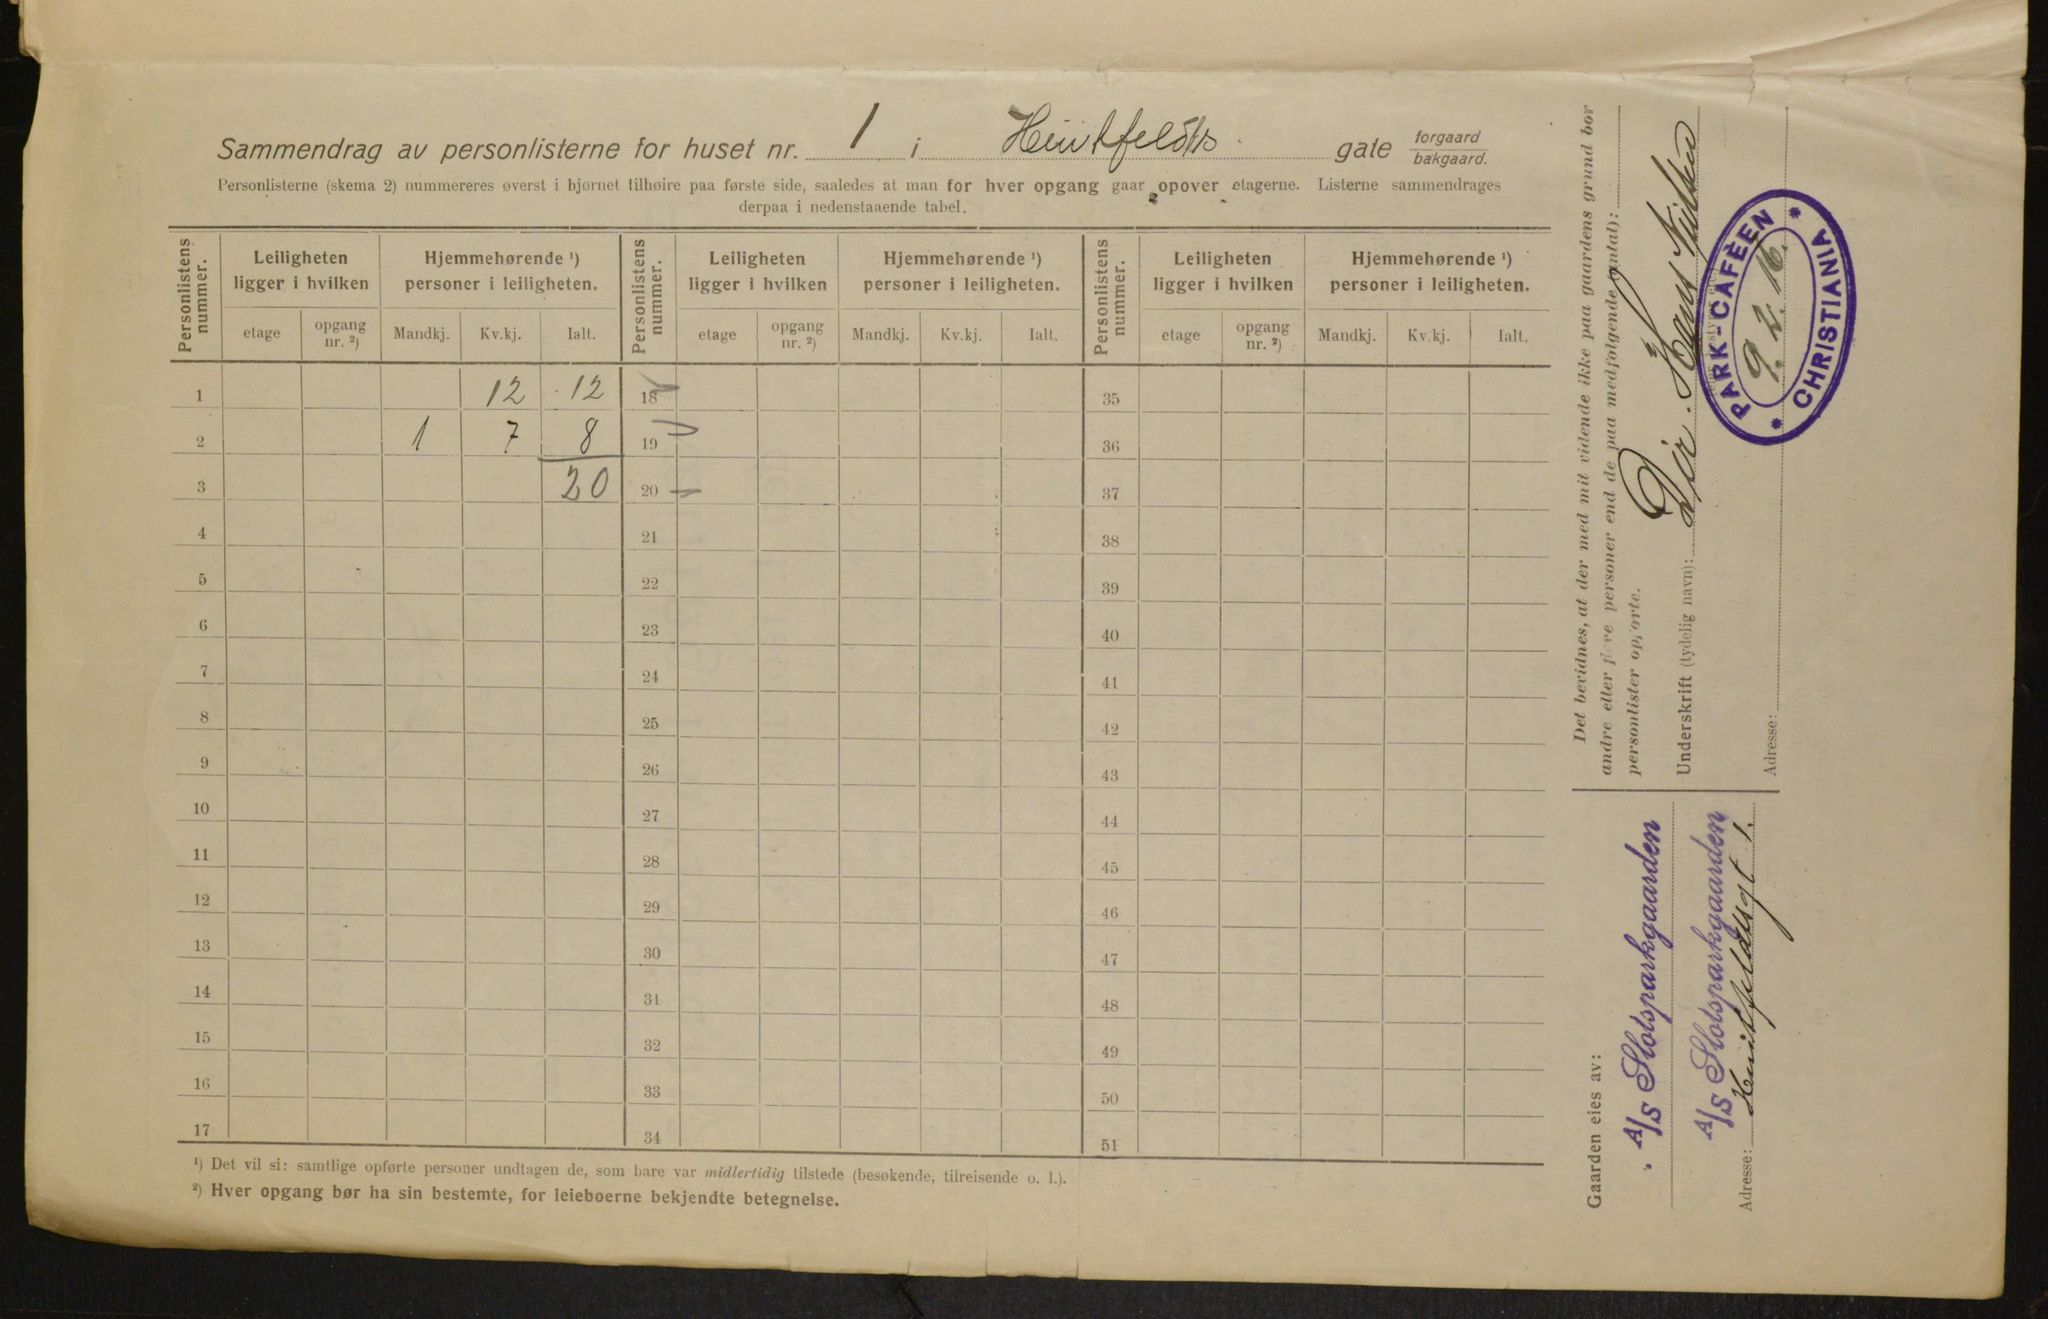 Sammendrag av personlisterne for huset nr. 1 i Huitfeldts gate forgaard bakgaard.
Personlisterne (skema 2) nummereres øverst i hjørnet tilhøire paa første side, saaledes at man for hver opgang gaar opover etagerne. Listerne sammendrages
derpaa i nedenstaaende tabel.
Personlistens nummer. Leiligheten ligger i hvilken Hjemmehørende ¹) personer i leiligheten. Personlistens nummer. Leiligheten ligger i hvilken Hjemmehørende ¹) personer i leiligheten. Personlistens nummer. Leiligheten ligger i hvilken Hjemmehørende ¹) personer i leiligheten.
etage opgang nr. ²) Mandkj. Kv.kj. Ialt. etage opgang nr. ²) Mandkj. Kv.kj. Ialt. etage opgang nr. ²) Mandkj. Kv.kj. Ialt.
1 12 12 18 35
2 1 7 8 19 36
3 20 20 37
4 21 38
5 22 39
6 23 40
7 24 41
8 25 42
9 26 43
10 27 44
11 28 45
12 29 46
13 30 47
14 31 48
15 32 49
16 33 50
17 34 51
¹) Det vil si: samtlige opførte personer undtagen de, som bare var midlertidig tilstede (besøkende, tilreisende o. l.).
²) Hver opgang bør ha sin bestemte, for leieboerne bekjendte betegnelse.
Det bevidnes, at der med mit vidende ikke paa gaardens grund bor
andre eller flere personer end de paa medfølgende (antal):
personlister opførte.
Underskrift (tydelig navn): Dir. Hans Nielsen
Adresse:
PARK-CAFÈEN
9. 2. 16.
CHRISTIANIA
Gaarden eies av:
A/S Slotsparkgaarden
A/S Slotsparkgaarden
Adresse: Huitfeldtsgt 1.